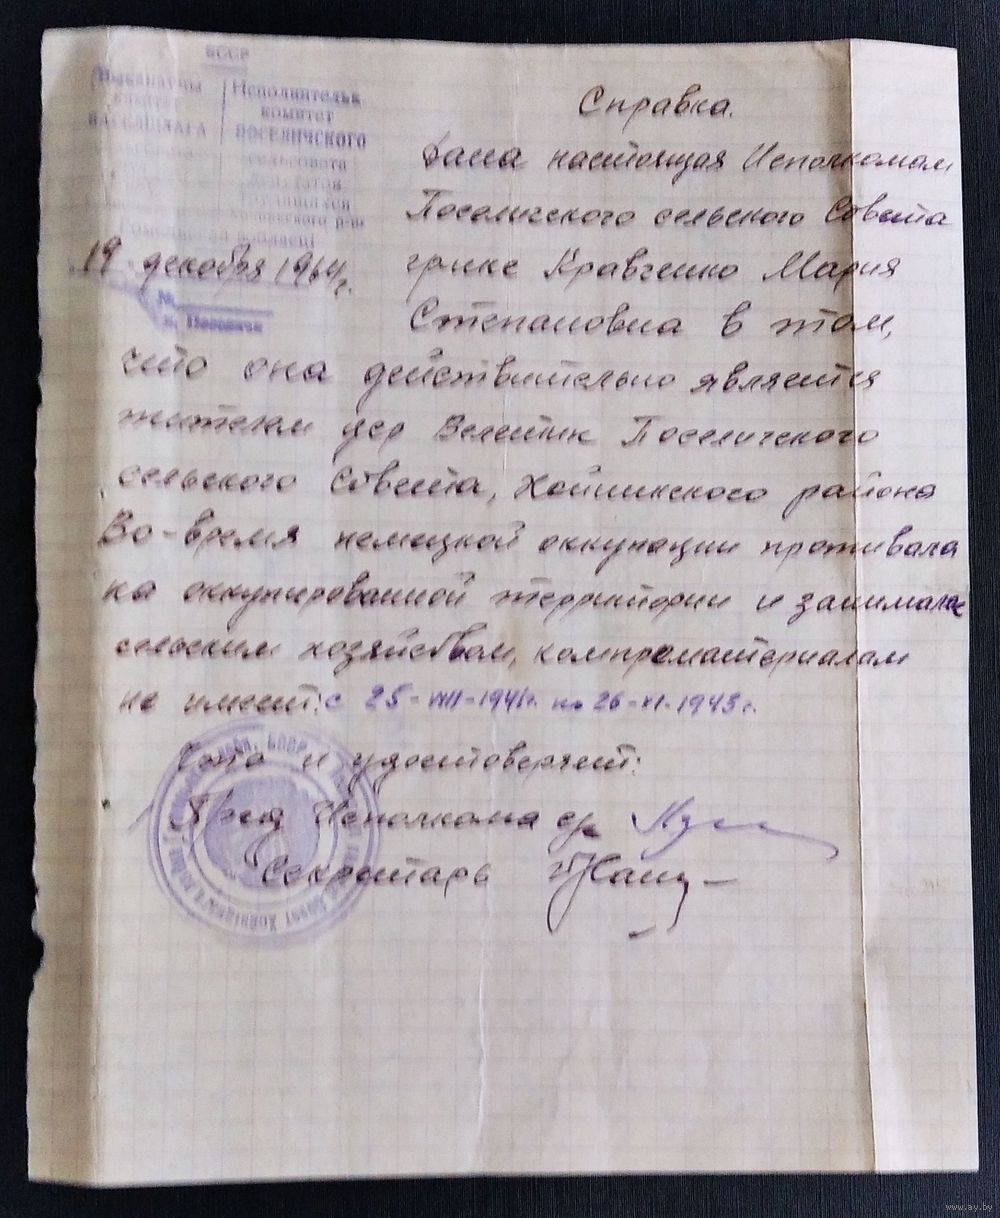 БССР
Выканаўчы
камітэт
Исполнительн.
комитет
ПОСЕЛИЧСКОГО
сельсовета
депутатов
трудящихся
19 декабря 1964г.
№
д. Поселичи
Справка.
Дана настоящая Исполкомам
Поселичского сельского Совета
гр-ке Кравченко Мария
Степановна в том,
что она действительно является
жителем дер Велетин Поселичского
сельского Совета, Хойникского района
Во-время немецкой оккупации проживала
на оккупированной территории и занималась
сельским хозяйством, компроматериалам
не имеет: с 25-VIII-1941г. по 26-XI-1943г.
и удостоверяет:
Пред Исполкома с/с
Секретарь
www.ay.by